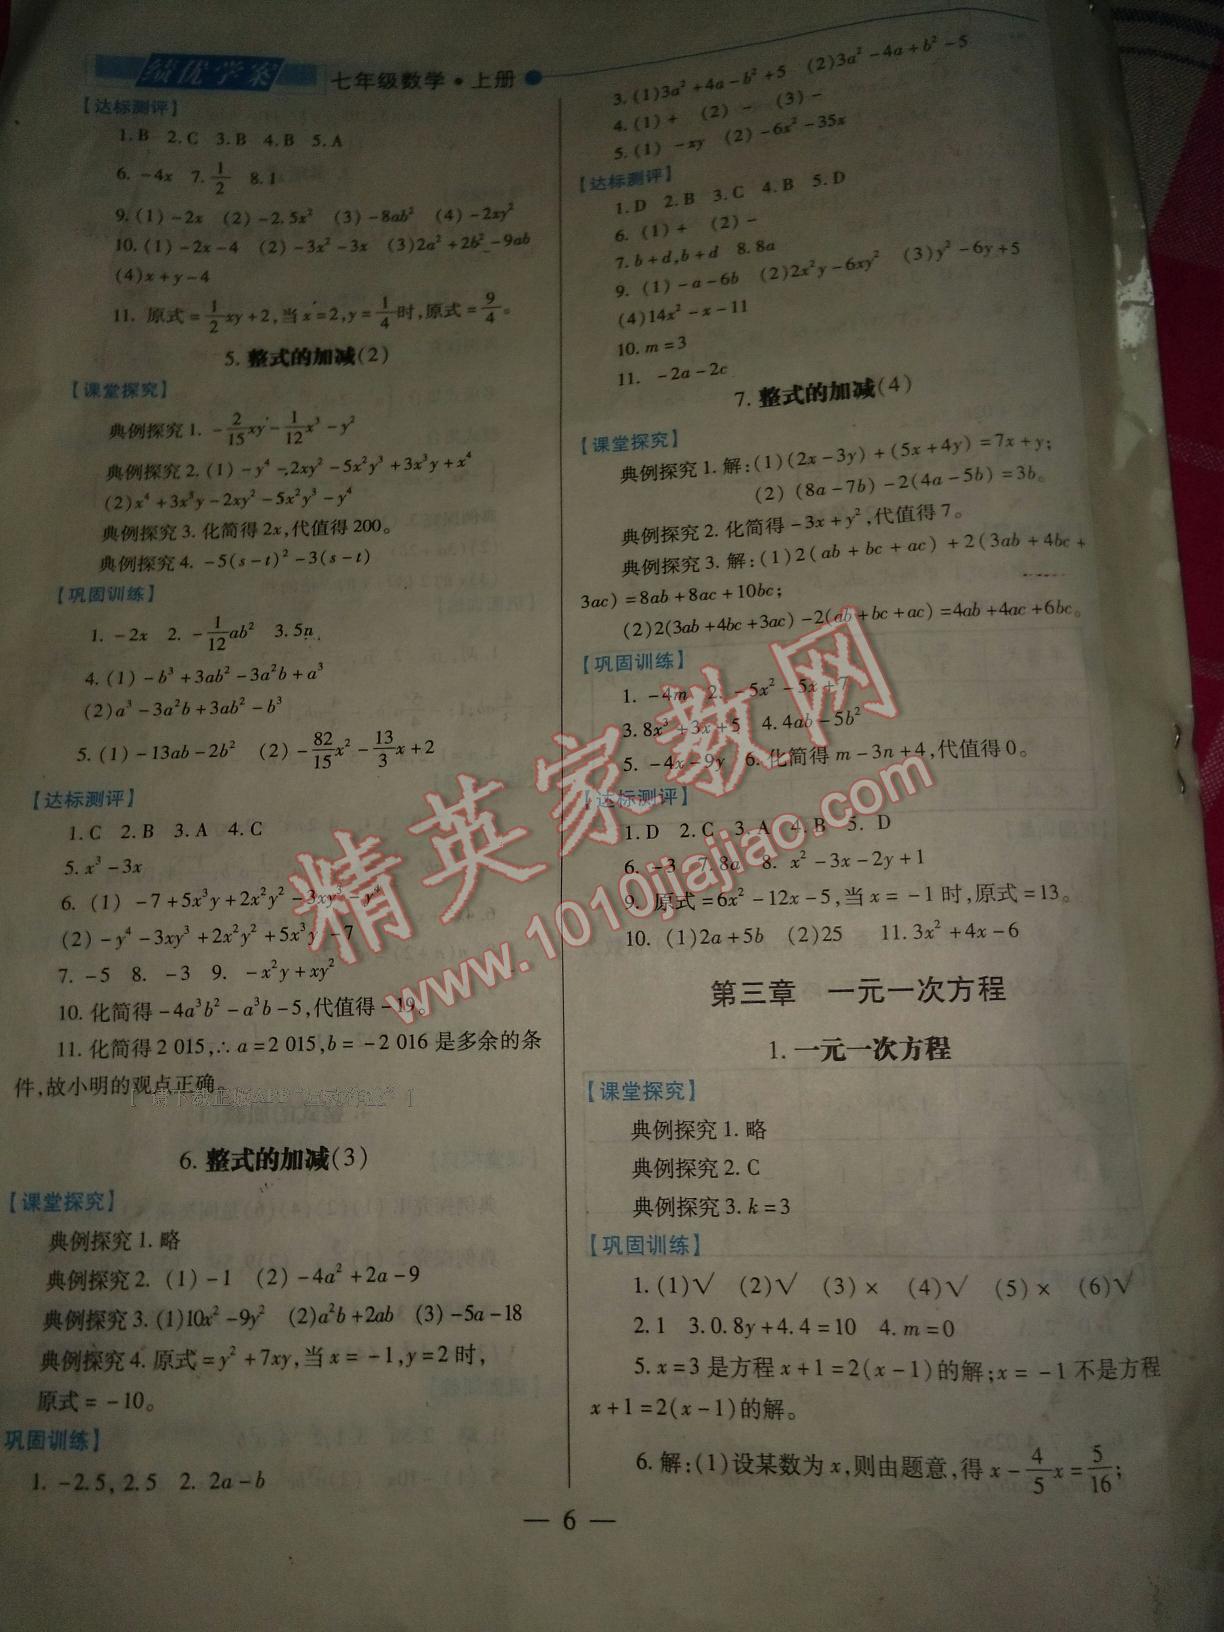 绩优学案 七年级数学·上册
【达标测评】
1. B 2. C 3. B 4. B 5. A
6. -4x 7. 1/2 8. 1
9. (1)-2x (2)-2.5x² (3)-8ab² (4)-2xy²
10. (1)-2x-4 (2)-3x²-3x (3)2a²+2b²-9ab
(4)x+y-4
11. 原式=1/2xy+2,当x=2,y=1/4时,原式=9/4。
5. 整式的加减(2)
【课堂探究】
典例探究1. -2/15xy-1/12x³-y²
典例探究2. (1)-y⁴-2xy²-5x²y³+3x³y+x⁴
(2)x⁴+3x³y-2xy²-5x²y³-y⁴
典例探究3. 化简得2x,代值得200。
典例探究4. -5(s-t)²-3(s-t)
【巩固训练】
1. -2x 2. -1/12ab² 3. 5n
4. (1)-b³+3ab²-3a²b+a³
(2)a³-3a²b+3ab²-b³
5. (1)-13ab-2b² (2)-82/15x²-13/3x+2
【达标测评】
1. C 2. B 3. A 4. C
5. x³-3x
6. (1) -7+5x³y+2x²y²-3xy³-y⁴
(2)-y⁴-3xy³+2x²y²+5x³y-7
7. -5 8. -3 9. -x²y+xy²
10. 化简得-4a³b²-a³b-5,代值得-19。
11. 化简得2 015,∴a=2 015,b=-2 016是多余的条
件,故小明的观点正确。
6. 整式的加减(3)
【课堂探究】
典例探究1. 略
典例探究2. (1)-1 (2)-4a²+2a-9
典例探究3. (1)10x²-9y² (2)a²b+2ab (3)-5a-18
典例探究4. 原式=y²+7xy,当x=-1,y=2时,
原式=-10。
巩固训练】
1. -2.5,2.5 2. 2a-b
3. (1)3a²+4a-b²+5 (2)3a²-4a+b²-5
4. (1)+ (2)- (3)-
5. (1) -xy (2)-6x²-35x
【达标测评】
1. D 2. B 3. C 4. B 5. D
6. (1)+ (2)-
7. b+d,b+d 8. 8a
9. (1)-a-6b (2)2x²y-6xy² (3)y²-6y+5
(4)14x²-x-11
10. m=3
11. -2a-2c
7. 整式的加减(4)
【课堂探究】
典例探究1. 解:(1)(2x-3y)+(5x+4y)=7x+y;
(2) (8a-7b)-2(4a-5b)=3b。
典例探究2. 化简得-3x+y²,代值得7。
典例探究3. 解:(1)2(ab+bc+ac)+2(3ab+4bc+
3ac)=8ab+8ac+10bc;
(2)2(3ab+4bc+3ac)-2(ab+bc+ac)=4ab+4ac+6bc。
【巩固训练】
1. -4m 2. -5x²-5x+7
3. 8x³+3x+5 4. 4ab-5b²
5. -4x-9y 6. 化简得m-3n+4,代值得0。
【达标测评】
1. D 2. C 3. A 4. B 5. D
6. -3 7. 8a 8. x²-3x-2y+1
9. 原式=6x²-12x-5,当x=-1时,原式=13。
10. (1)2a+5b (2)25 11. 3x²+4x-6
第三章 一元一次方程
1. 一元一次方程
【课堂探究】
典例探究1. 略
典例探究2. C
典例探究3. k=3
【巩固训练】
1. (1)√ (2)√ (3)× (4)√ (5)× (6)√
2. 1 3. 0.8y+4.4=10 4. m=0
5. x=3是方程x+1=2(x-1)的解;x=-1不是方程
x+1=2(x-1)的解。
6. 解:(1)设某数为x,则由题意,得x-4/5x=5/16;
— 6 —
精英家教网
www.1010jiajiao.com